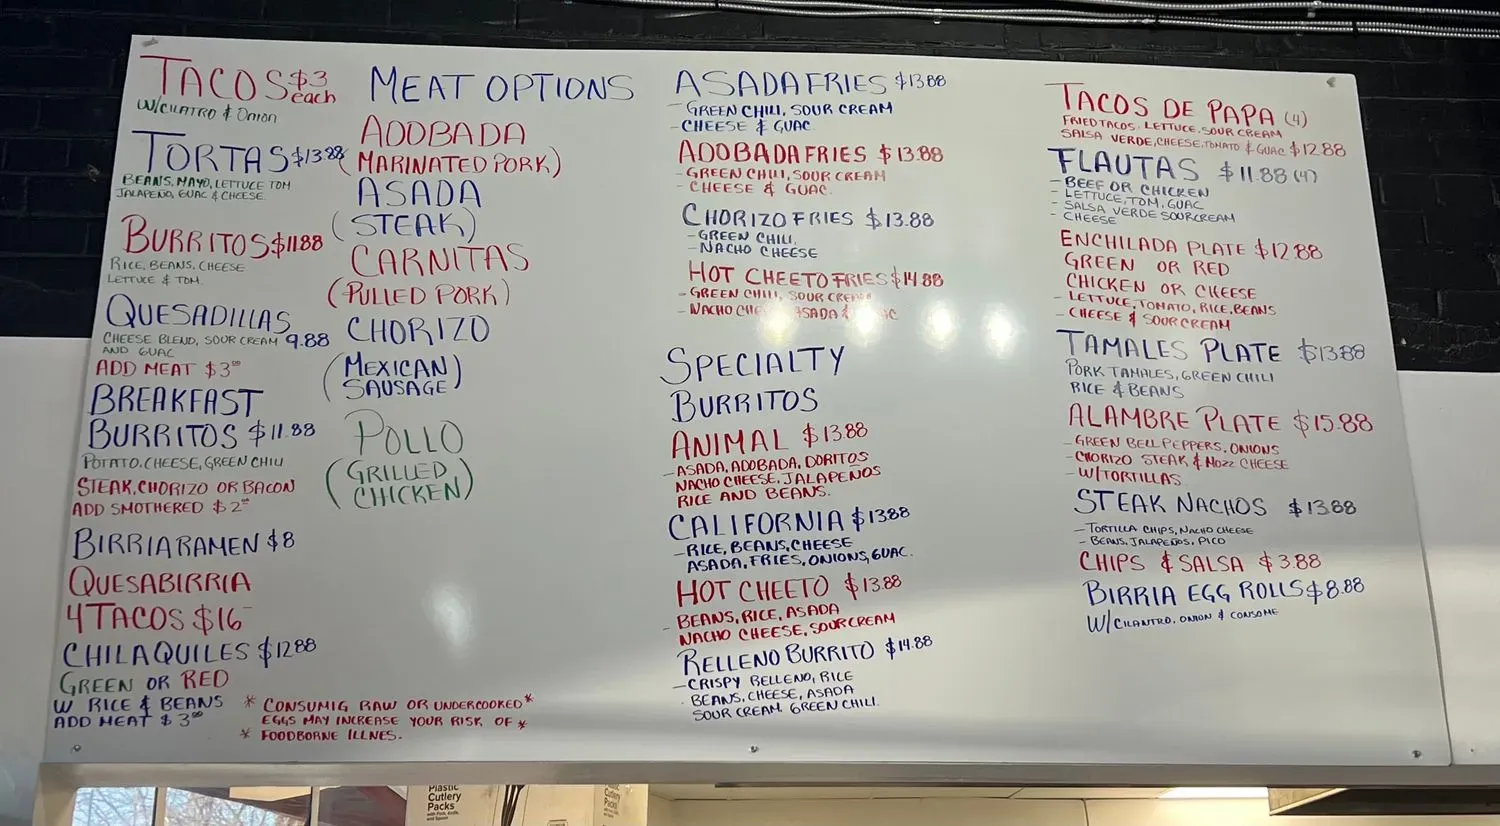 TACOS $3 each
W/CILATRO & ONION
TORTAS $13.88
BEANS, MAYO, LETTUCE TOM
JALAPEÑO, GUAC & CHEESE.
BURRITOS $11.88
RICE, BEANS, CHEESE
LETTUCE & TOM.
QUESADILLAS
CHEESE BLEND, SOUR CREAM 9.88
AND GUAC
ADD MEAT $3⁰⁰
BREAKFAST
BURRITOS $11.88
POTATO, CHEESE, GREEN CHILI
STEAK, CHORIZO OR BACON
ADD SMOTHERED $2⁰⁰
BIRRIA RAMEN $8
QUESABIRRIA
4 TACOS $16
CHILAQUILES $12.88
GREEN OR RED
W RICE & BEANS
ADD MEAT $3⁰⁰
MEAT OPTIONS
ADOBADA
(MARINATED PORK)
ASADA
(STEAK)
CARNITAS
(PULLED PORK)
CHORIZO
(MEXICAN
SAUSAGE)
POLLO
(GRILLED
CHICKEN)
* CONSUMIG RAW OR UNDERCOOKED *
EGGS MAY INCREASE YOUR RISK OF *
* FOODBORNE ILLNES.
ASADA FRIES $13.88
- GREEN CHILI, SOUR CREAM
- CHEESE & GUAC
ADOBADA FRIES $13.88
- GREEN CHILI, SOUR CREAM
- CHEESE & GUAC.
CHORIZO FRIES $13.88
- GREEN CHILI,
- NACHO CHEESE
HOT CHEETO FRIES $14.88
- GREEN CHILI, SOUR CREAM
- NACHO ASADA &
SPECIALTY
BURRITOS
ANIMAL $13.88
- ASADA, ADOBADA, DORITOS
NACHO CHEESE, JALAPEÑOS
RICE AND BEANS.
CALIFORNIA $13.88
- RICE, BEANS, CHEESE
ASADA, FRIES, ONIONS, GUAC.
HOT CHEETO $13.88
- BEANS, RICE, ASADA
NACHO CHEESE, SOUR CREAM
RELLENO BURRITO $14.88
- CRISPY RELLENO, RICE
BEANS, CHEESE, ASADA
SOUR CREAM. GREEN CHILI.
TACOS DE PAPA (4)
FRIED TACOS, LETTUCE, SOUR CREAM
SALSA VERDE, CHEESE, TOMATO & GUAC $12.88
FLAUTAS $11.88 (4)
- BEEF OR CHICKEN
- LETTUCE, TOM, GUAC
- SALSA VERDE SOUR CREAM
- CHEESE
ENCHILADA PLATE $12.88
GREEN OR RED
CHICKEN OR CHEESE
- LETTUCE, TOMATO, RICE, BEANS
- CHEESE & SOUR CREAM
TAMALES PLATE $13.88
PORK TAMALES, GREEN CHILI
RICE & BEANS
ALAMBRE PLATE $15.88
- GREEN BELL PEPPERS, ONIONS
- CHORIZO STEAK & MOZZ CHEESE
- W/TORTILLAS
STEAK NACHOS $13.88
- TORTILLA CHIPS, NACHO CHEESE
- BEANS, JALAPEÑOS, PICO
CHIPS & SALSA $3.88
BIRRIA EGG ROLLS $8.88
W/CILANTRO, ONION & CONSOME
Plastic
Cutlery
Packs